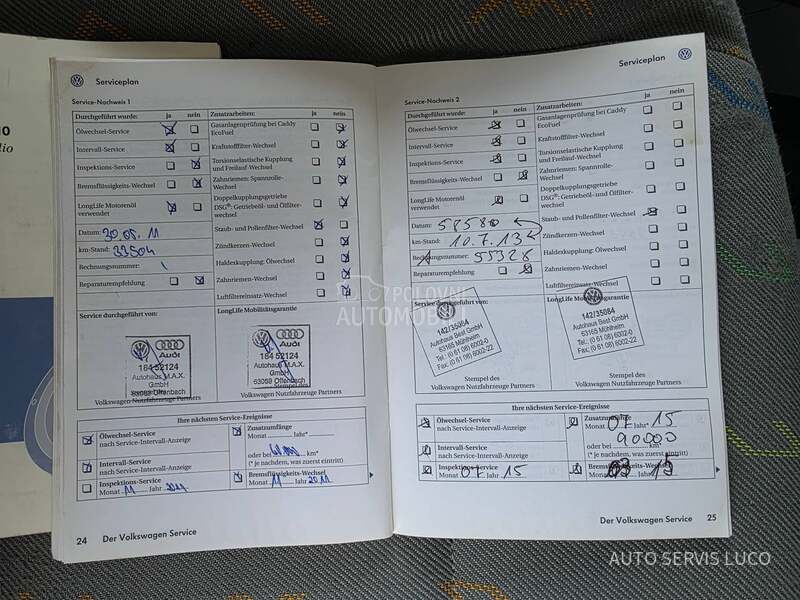 Serviceplan
Service-Nachweis 1
Durchgeführt wurde: ja nein
Ölwechsel-Service
Intervall-Service
Inspektions-Service
Bremsflüssigkeits-Wechsel
LongLife Motorenöl
verwendet
Datum: 30.05.11
km-Stand: 33504
Rechnungsnummer:
Reparaturempfehlung
Zusatzarbeiten: ja nein
Gasanlagenprüfung bei Caddy
EcoFuel
Kraftstofffilter-Wechsel
Torsionselastische Kupplung
und Freilauf-Wechsel
Zahnriemen: Spannrolle-
Wechsel
Doppelkupplungsgetriebe
DSG®: Getriebeöl- und Ölfilter-
wechsel
Staub- und Pollenfilter-Wechsel
Zündkerzen-Wechsel
Haldexkupplung: Ölwechsel
Zahnriemen-Wechsel
Luftfiltereinsatz-Wechsel
Service durchgeführt von:
Audi
184 52124
Autohaus M.A.X.
GmbH
63069 Offenbach
Volkswagen Nutzfahrzeuge Partners
LongLife Mobilitätsgarantie
Audi
184 52124
Autohaus M.A.X.
GmbH
63069 Offenbach
Stempel des
Volkswagen Nutzfahrzeuge Partners
Ihre nächsten Service-Ereignisse
Ölwechsel-Service
nach Service-Intervall-Anzeige
Intervall-Service
nach Service-Intervall-Anzeige
Inspektions-Service
Monat 11 Jahr 2011
Zusatzumfänge
Monat Jahr*
oder bei km*
(* je nachdem, was zuerst eintritt)
Bremsflüssigkeits-Wechsel
Monat 11 Jahr 2011
24 Der Volkswagen Service
Serviceplan
Service-Nachweis 2
Durchgeführt wurde: ja nein
Ölwechsel-Service
Intervall-Service
Inspektions-Service
Bremsflüssigkeits-Wechsel
LongLife Motorenöl
verwendet
Datum: 58580
km-Stand: 10.7.13
Rechnungsnummer: 55328
Reparaturempfehlung
Zusatzarbeiten: ja nein
Gasanlagenprüfung bei Caddy
EcoFuel
Kraftstofffilter-Wechsel
Torsionselastische Kupplung
und Freilauf-Wechsel
Zahnriemen: Spannrolle-
Wechsel
Doppelkupplungsgetriebe
DSG®: Getriebeöl- und Ölfilter-
wechsel
Staub- und Pollenfilter-Wechsel
Zündkerzen-Wechsel
Haldexkupplung: Ölwechsel
Zahnriemen-Wechsel
Luftfiltereinsatz-Wechsel
Service durchgeführt von:
142/35084
Autohaus Best GmbH
63165 Mühlheim
Tel.: (0 61 08) 6002-0
Fax: (0 61 08) 6002-22
Stempel des
Volkswagen Nutzfahrzeuge Partners
LongLife Mobilitätsgarantie
142/35084
Autohaus Best GmbH
63165 Mühlheim
Tel.: (0 61 08) 6002-0
Fax: (0 61 08) 6002-22
Stempel des
Volkswagen Nutzfahrzeuge Partners
Ihre nächsten Service-Ereignisse
Ölwechsel-Service
nach Service-Intervall-Anzeige
Intervall-Service
nach Service-Intervall-Anzeige
Inspektions-Service
Monat 07 Jahr 15
Zusatzumfänge
Monat 07 Jahr* 15
oder bei 90000 km*
(* je nachdem, was zuerst eintritt)
Bremsflüssigkeits-Wechsel
Monat Jahr 15
Der Volkswagen Service 25
POLOVNI
AUTOMOBILI
AUTO SERVIS LUCO